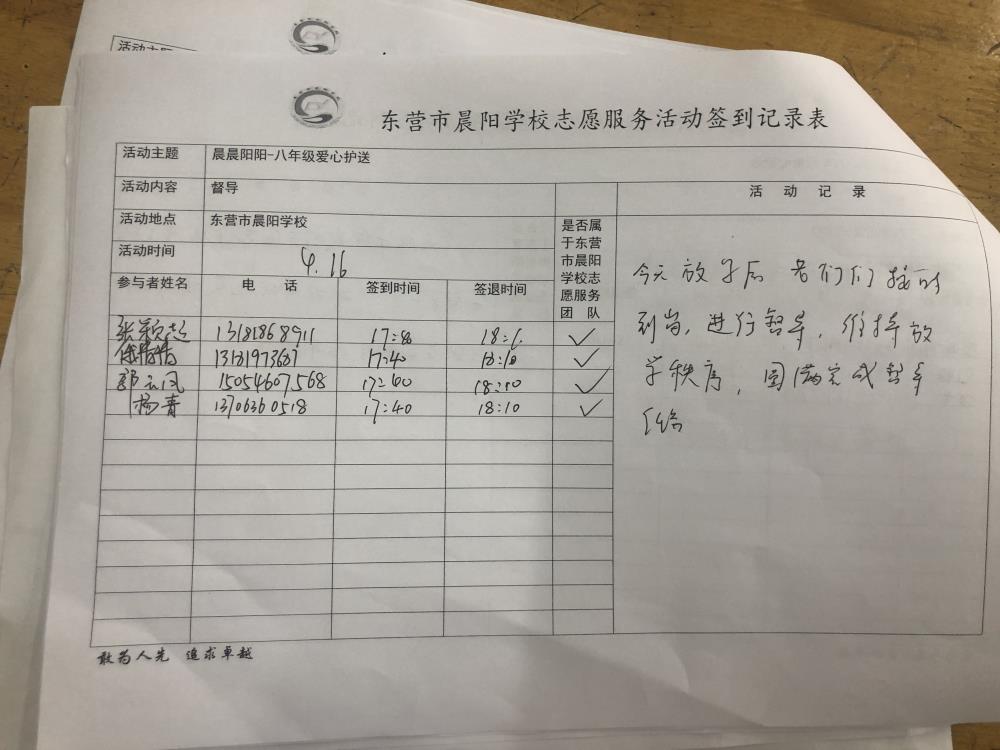 活动主题
东营市晨阳学校志愿服务活动签到记录表
活动主题 晨晨阳阳-八年级爱心护送
活动内容 督导 活 动 记 录
活动地点 东营市晨阳学校
是否属于东营市晨阳学校志愿服务团队
活动时间 4.16
参与者姓名 电 话 签到时间 签退时间
张颖超 13181868911 17: 18:1 ✓
13181973687 17:40 18:10 ✓
郭云凤 15054607568 17:40 18:10 ✓
杨青 13706360518 17:40 18:10 ✓
今天放学后 们 按时
到岗,进行督导,维持放
学秩序,圆满完成督导
任务
敢为人先 追求卓越